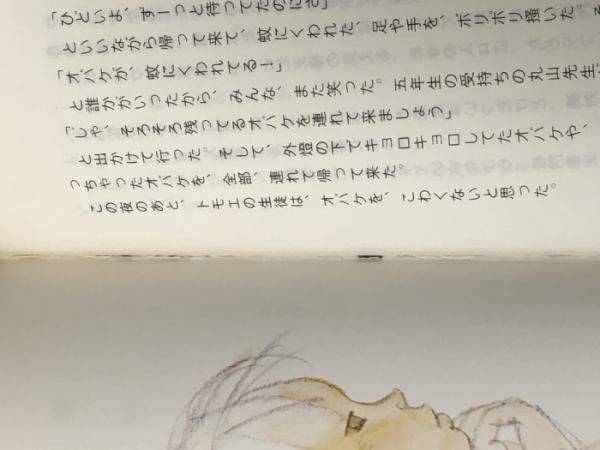 「ひどいよ、ずーっと待ってたのにさ
といいながら帰って来て、蚊にくわれた、足や手を、ボリボリ掻いた。
「オバケが、蚊にくわれてる！」
と誰かがいったから、みんな、また笑った。五年生の受持ちの丸山先生
「じゃ、そろそろ残ってるオバケを連れて来ましょう」
と出かけて行った。そして、外燈の下でキョロキョロしてたオバケや、
っちゃったオバケを、全部、連れて帰って来た。
この夜のあと、トモエの生徒は、オバケを、こわくないと思った。